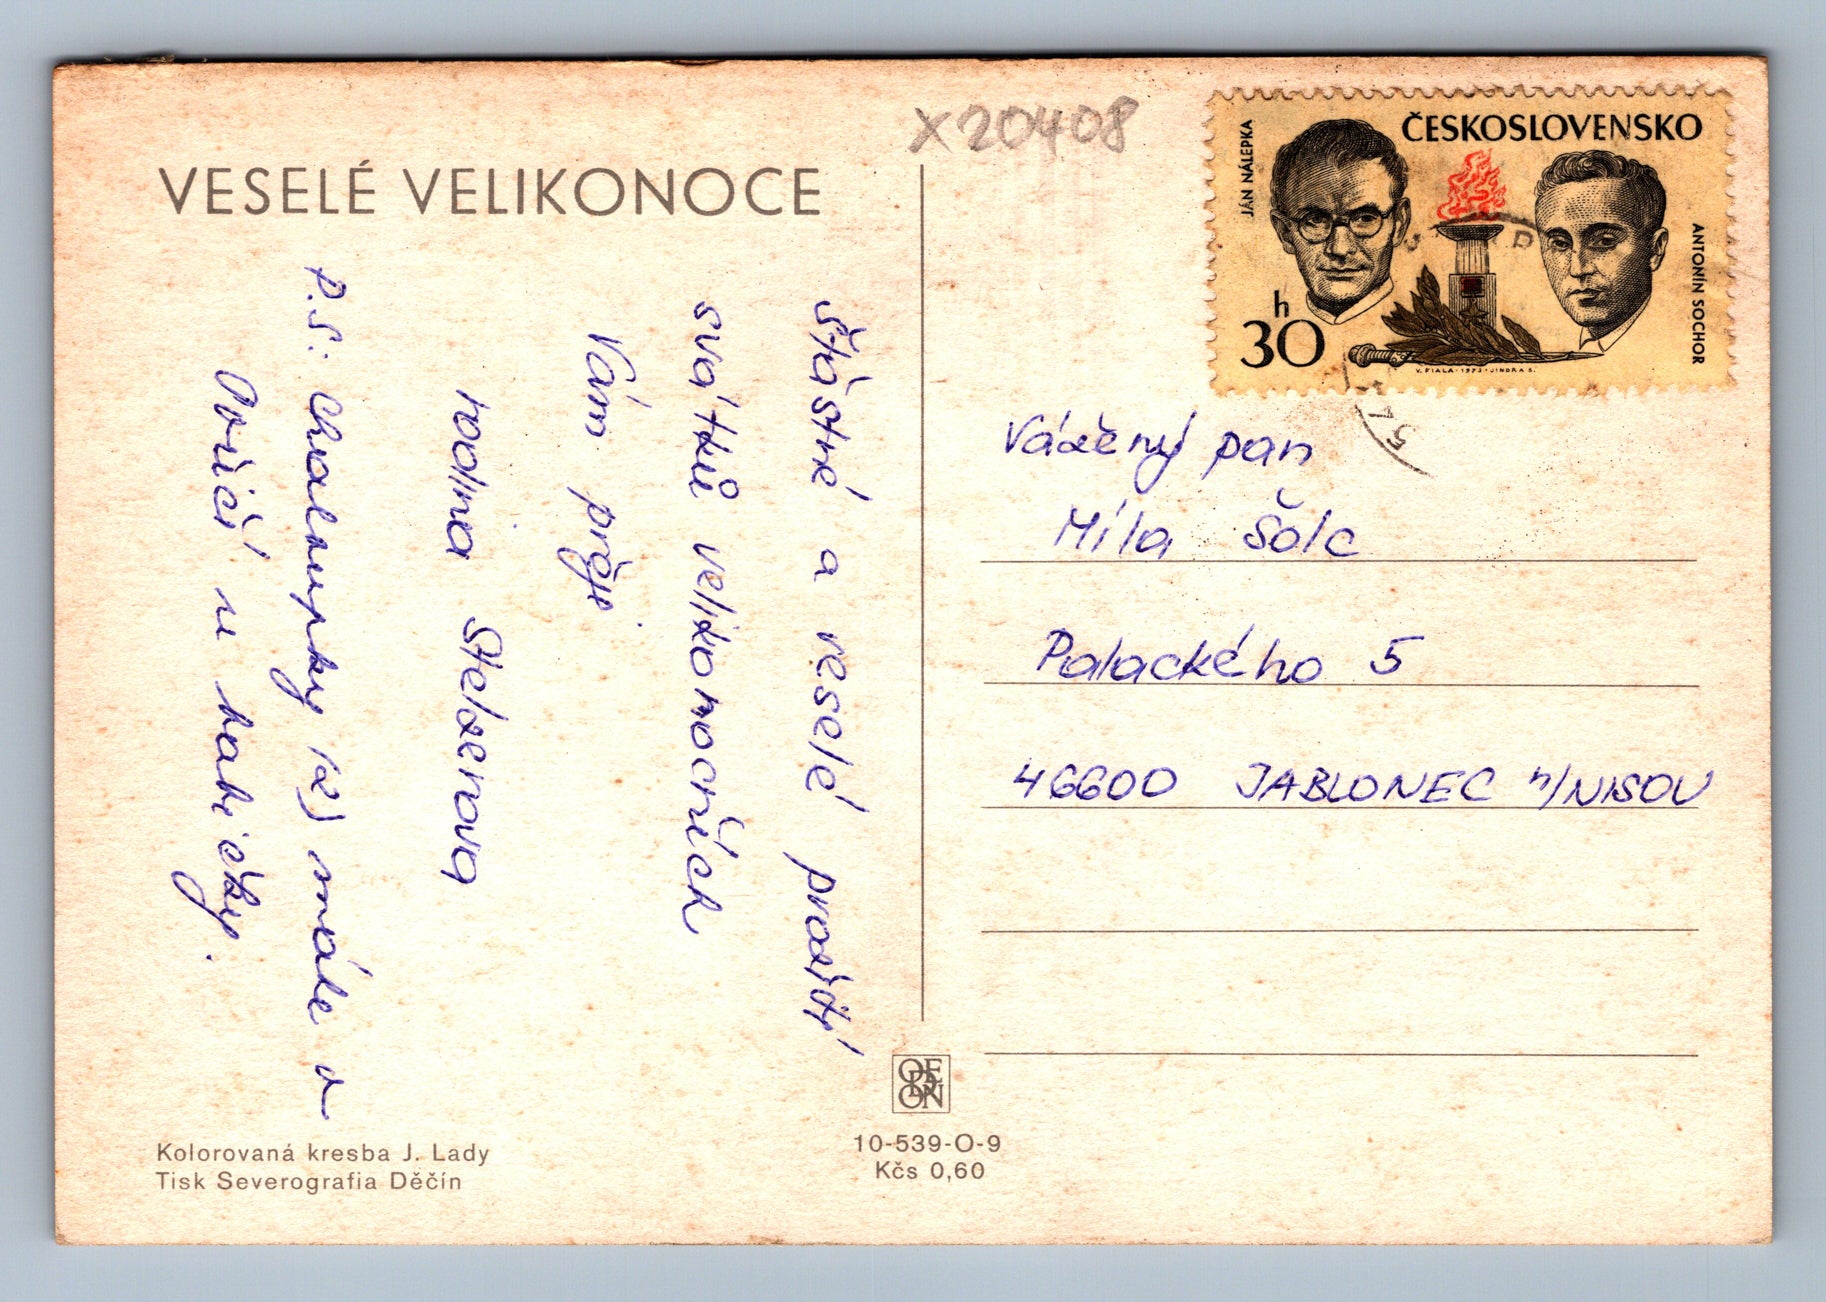 X20408
VESELÉ VELIKONOCE
Šťastné a veselé prožití
svátků velikonočních
Vám přeje
rodina Stelzerova
P.S: Chaloupky (z) máte v
Poříčí u babičky.
Kolorovaná kresba J. Lady
Tisk Severografia Děčín
ODEON
10-539-O-9
Kčs 0,60
ČESKOSLOVENSKO
JÁN NÁLEPKA
ANTONÍN SOCHOR
h
30
V. FIALA · 1973 · JINDRA S.
Vážený pan
Míla Šolc
Palackého 5
46600 JABLONEC n/NISOU